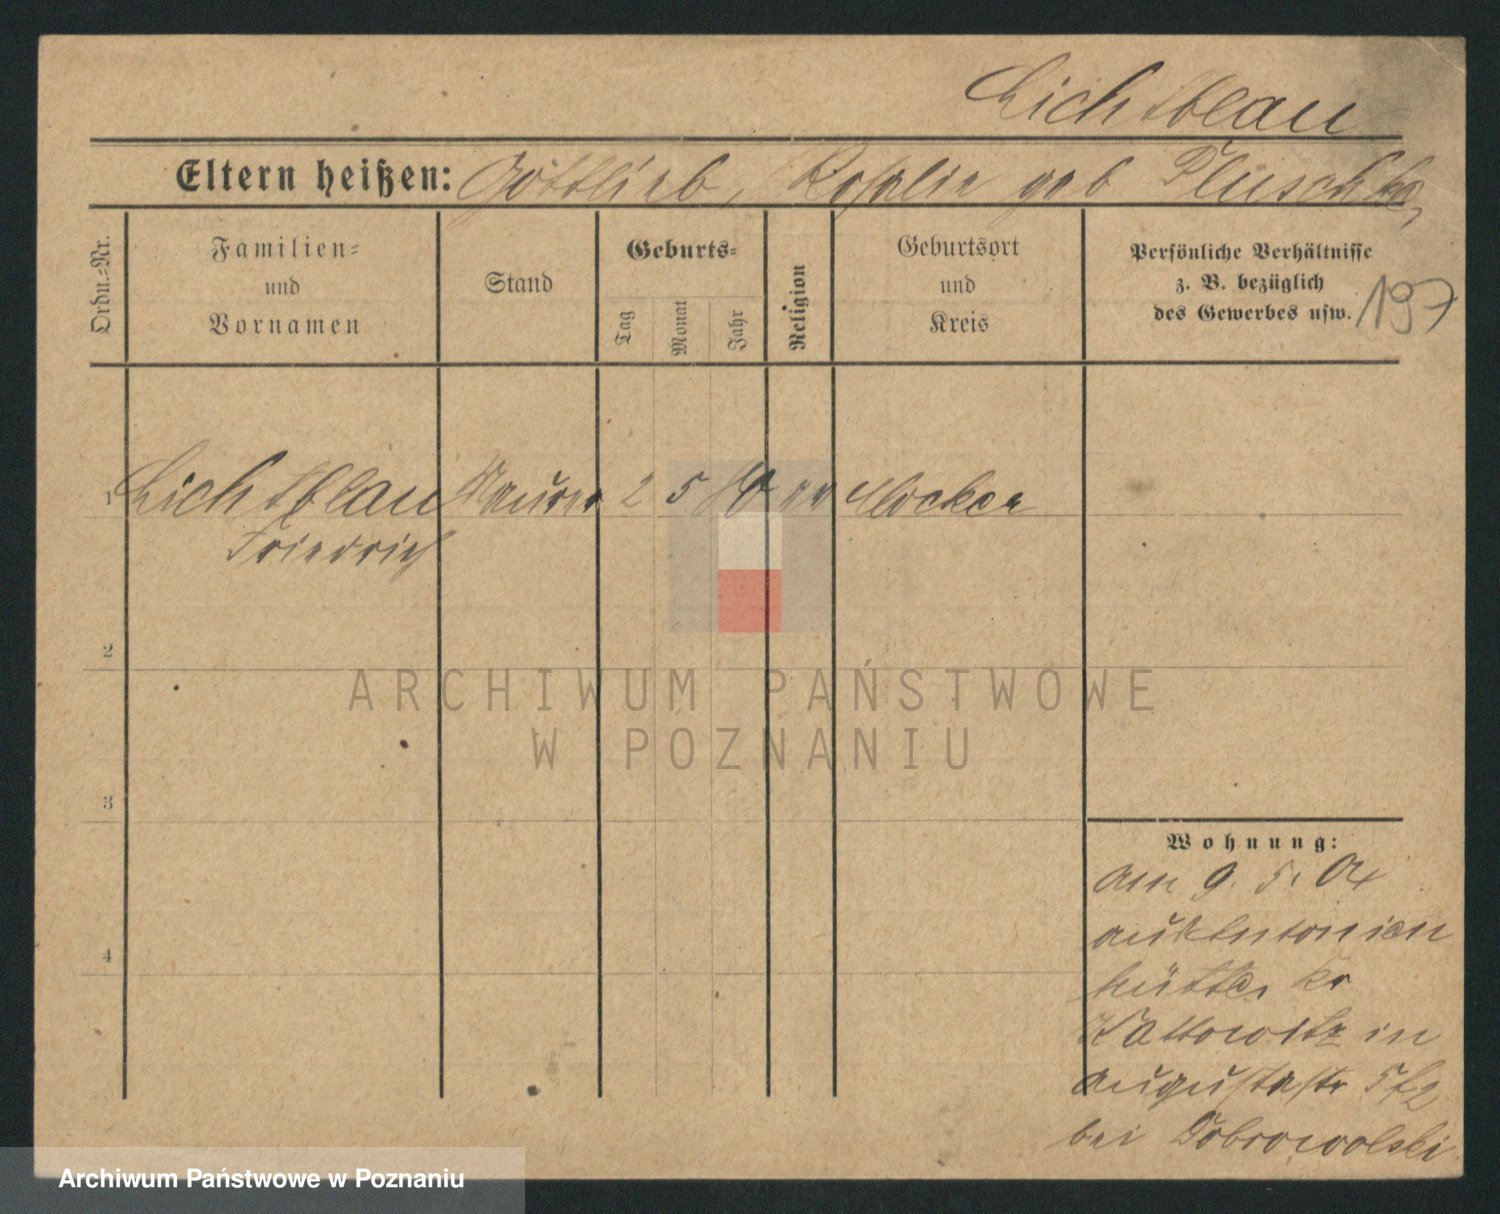 Lichtblau
Eltern heißen: Gottlieb, Rosalie geb Pluschke,
Ordn.-Nr.
Familien-
und
Vornamen
Stand
Geburts-
Tag
Monat
Jahr
Religion
Geburtsort
und
Kreis
Persönliche Verhältnisse
z. B. bezüglich
des Gewerbes usw.
197
1 Lichtblau Maurer 2 5 80 ev Mocker
Friedrich
2
3
4
ARCHIWUM PAŃSTWOWE
W POZNANIU
Wohnung:
am 9. 5. 04
aus Antonien
hütte, Kr
Kattowitz in
Augustastr
bei Dobrowolski
Archiwum Państwowe w Poznaniu